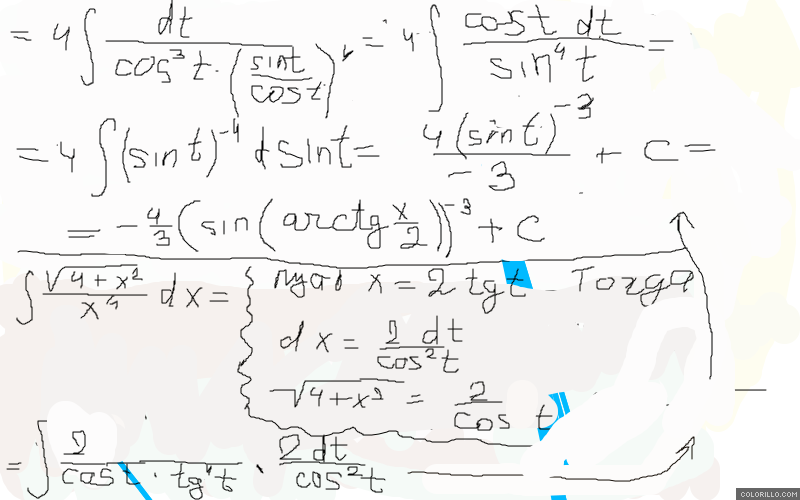 = 4 ∫ dt / (cos³t · (sin t / cos t)⁴) = 4 ∫ cos t dt / sin⁴t =
= 4 ∫ (sin t)⁻⁴ d sin t = 4 (sin t)⁻³ / -3 + C =
= -4/3 (sin (arctg x/2))⁻³ + C
∫ √(4 + x²) / x⁴ dx = { x = 2 tg t Тогда
dx = 2 dt / cos²t
√(4 + x²) = 2 / cos t
= ∫ 2 / (cos t · tg⁴t) · 2 dt / cos²t
COLORILLO.COM